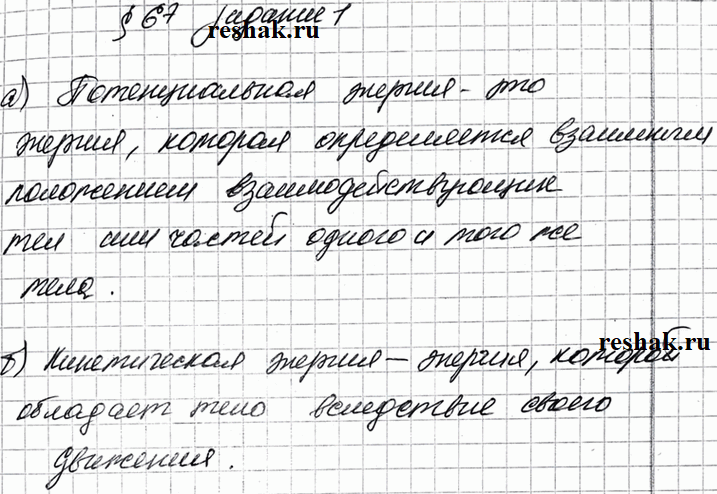 § 67 Задание 1
reshak.ru
а) Потенциальная энергия - это
энергия, которая определяется взаимным
положением взаимодействующих
тел или частей одного и того же
тела.
reshak.ru
б) Кинетическая энергия – энергия, которой
обладает тело вследствие своего
движения.